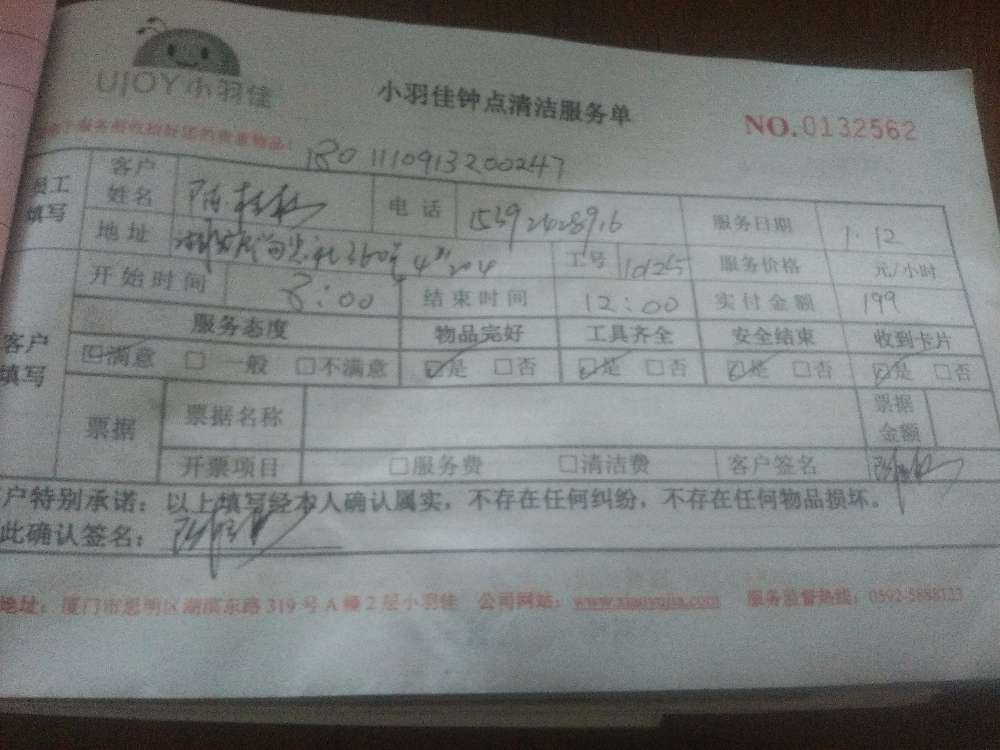 UJOY小羽佳
小羽佳钟点清洁服务单
NO.0132562
1801110913200247
员工填写
客户姓名
电话 15392628916
服务日期 1.12
地址 360号 4# 204
工号 1025
服务价格 元/小时
开始时间 8:00
结束时间 12:00
实付金额 199
客户填写
服务态度 物品完好 工具齐全 安全结束 收到卡片
☑满意 □一般 □不满意 ☑是 □否 ☑是 □否 ☑是 □否 ☑是 □否
票据
票据名称
票据金额
开票项目 □服务费 □清洁费 客户签名
户特别承诺：以上填写经本人确认属实，不存在任何纠纷，不存在任何物品损坏。
此确认签名：
地址：厦门市思明区湖滨东路319号A幢2层小羽佳 公司网站：www.xiaoyujia.com 服务监督热线：0592-5888123